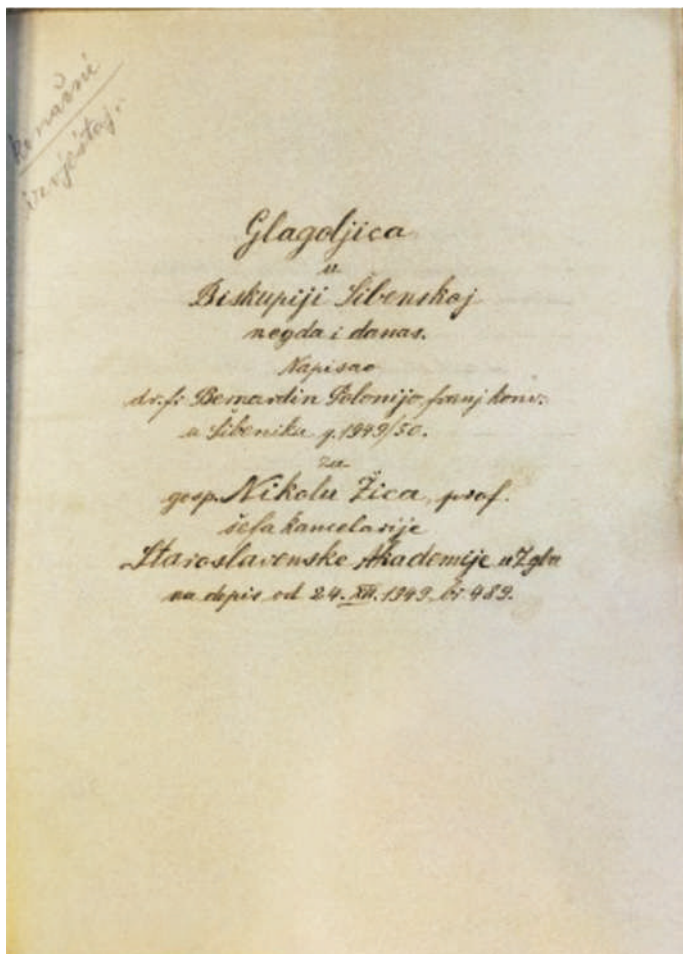 konačni
izvještaj.
Glagoljica
u
Biskupiji Šibenskoj
negda i danas.
Napisao
dr. fr. Bernardin Polonijo, franj. konv.
u Šibeniku g. 1949/50.
za
gosp. Nikolu Žica, prof.
šefa kancelarije
Staroslavenske Akademije u Zgbu
na dopis od 24. XII. 1949. br. 489.